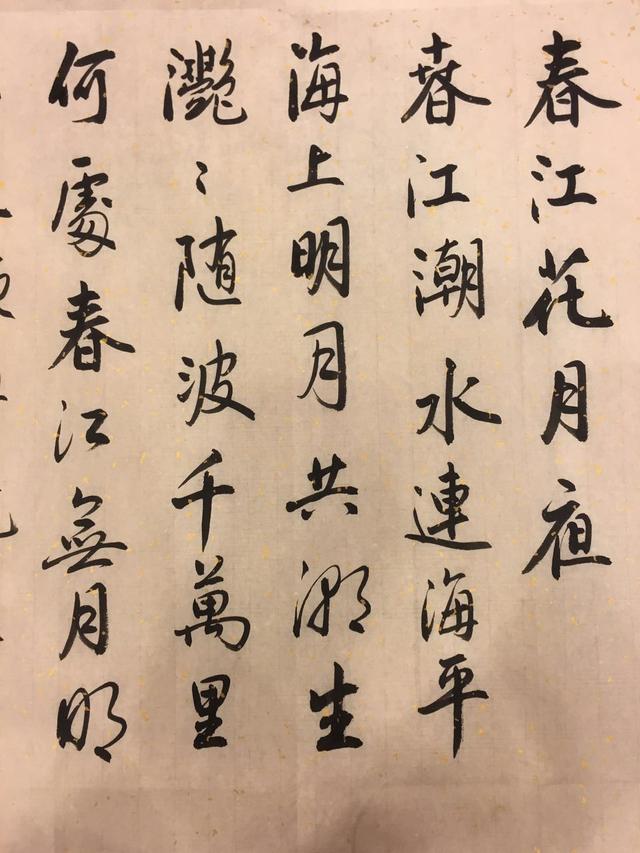 春江花月夜
春江潮水連海平
海上明月共潮生
灧〻随波千萬里
何處春江無月明